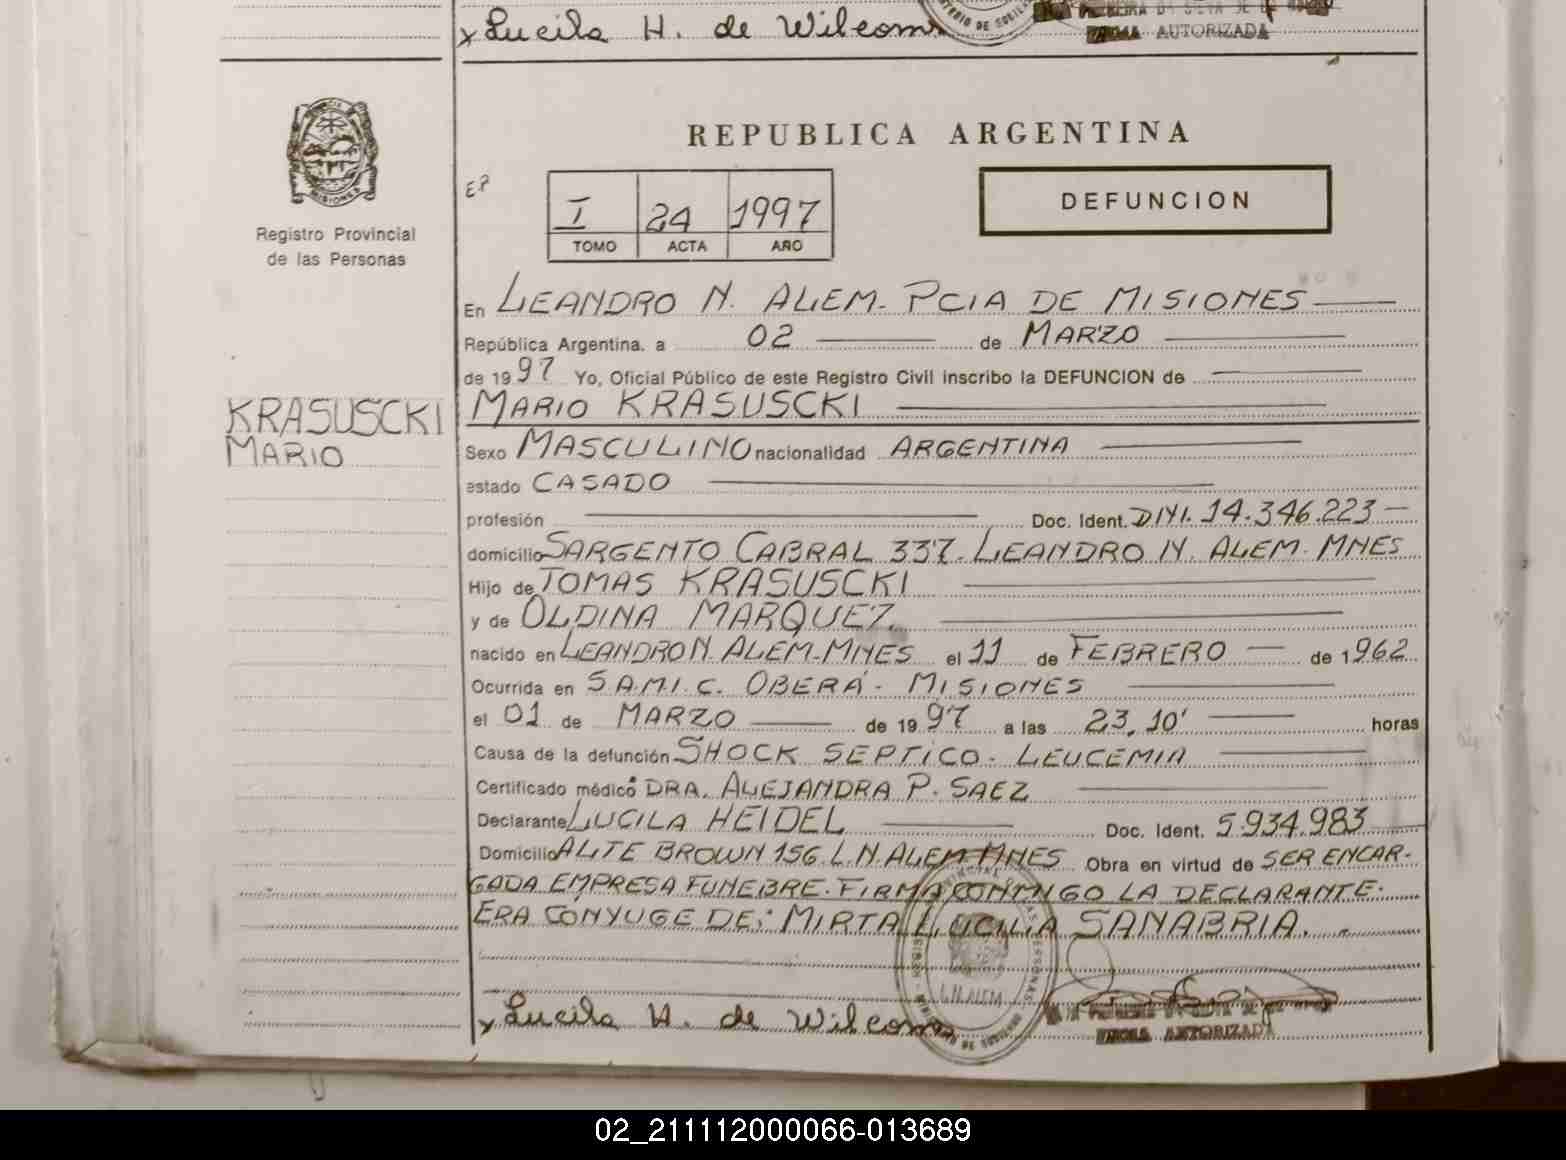 x Lucila H. de Wilcoms
AUTORIZADA
REPUBLICA ARGENTINA
I 24 1997
TOMO ACTA AÑO
DEFUNCION
MISIONES
Registro Provincial
de las Personas
En LEANDRO N. ALEM - PCIA DE MISIONES
República Argentina, a 02 de MARZO
de 1997 Yo, Oficial Público de este Registro Civil inscribo la DEFUNCION de
KRASUSCKI
MARIO
MARIO KRASUSCKI
Sexo MASCULINO nacionalidad ARGENTINA
estado CASADO
profesión Doc. Ident. DNI. 14.346.223
domicilio SARGENTO CABRAL 337. LEANDRO N. ALEM. MNES
Hijo de TOMAS KRASUSCKI
y de OLDINA MARQUEZ
nacido en LEANDRO N. ALEM - MNES el 11 de FEBRERO de 1962
Ocurrida en S.A.M.I.C. OBERÁ - MISIONES
el 01 de MARZO de 1997 a las 23,10' horas
Causa de la defunción SHOCK SEPTICO - LEUCEMIA
Certificado médico DRA. ALEJANDRA P. SAEZ
Declarante LUCILA HEIDEL Doc. Ident. 5.934.983
Domicilio ALTE BROWN 156. L.N. ALEM MNES Obra en virtud de SER ENCAR-
GADA EMPRESA FUNEBRE. FIRMA CONMIGO LA DECLARANTE.
ERA CÓNYUGE DE: MIRTA LUCILA SANABRIA.
L.N. ALEM
x Lucila H. de Wilcoms
FIRMA AUTORIZADA
02_211112000066-013689